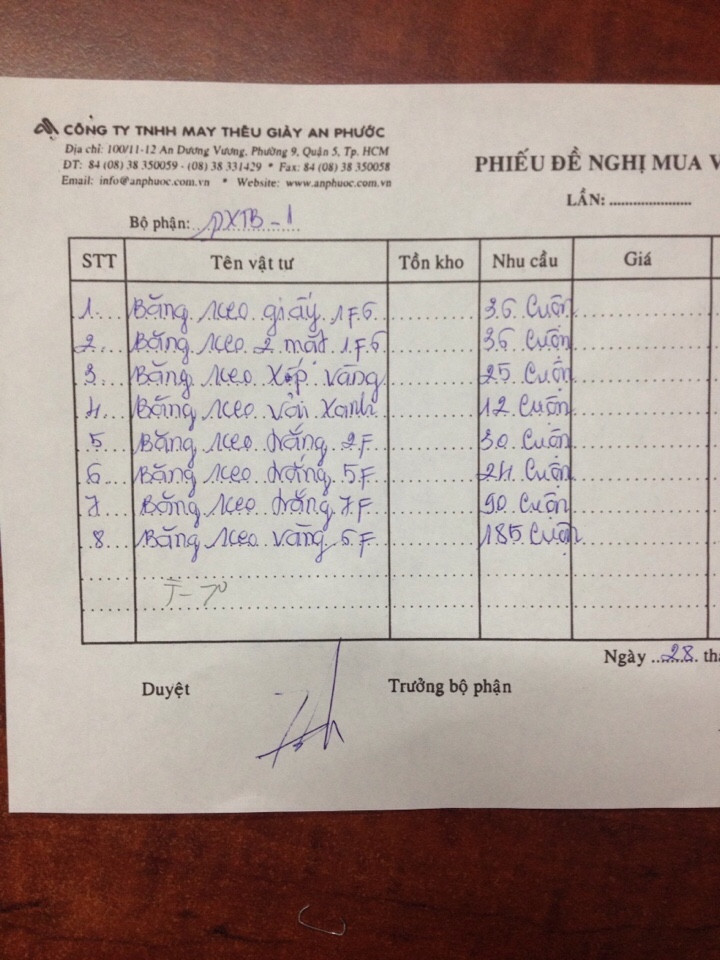 CÔNG TY TNHH MAY THÊU GIÀY AN PHƯỚC
Địa chỉ: 100/11-12 An Dương Vương, Phường 9, Quận 5, Tp. HCM
ĐT: 84 (08) 38 350059 - (08) 38 331429 * Fax: 84 (08) 38 350058
Email: info@anphuoc.com.vn * Website: www.anphuoc.com.vn
PHIẾU ĐỀ NGHỊ MUA V
LẦN: ....................
Bộ phận: PXTB-1
STT Tên vật tư Tồn kho Nhu cầu Giá
1. Băng keo giấy 1F6 36 cuộn
2. Băng keo 2 mặt 1F6 36 cuộn
3. Băng keo xốp vàng 25 cuộn
4. Băng keo vải xanh 12 cuộn
5 Băng keo trắng 2F 30 cuộn
6 Băng keo trắng 5F 24 cuộn
7 Băng keo trắng 7F 90 cuộn
8. Băng keo vàng 5F 185 cuộn
Ngày 28 thá
Duyệt Trưởng bộ phận